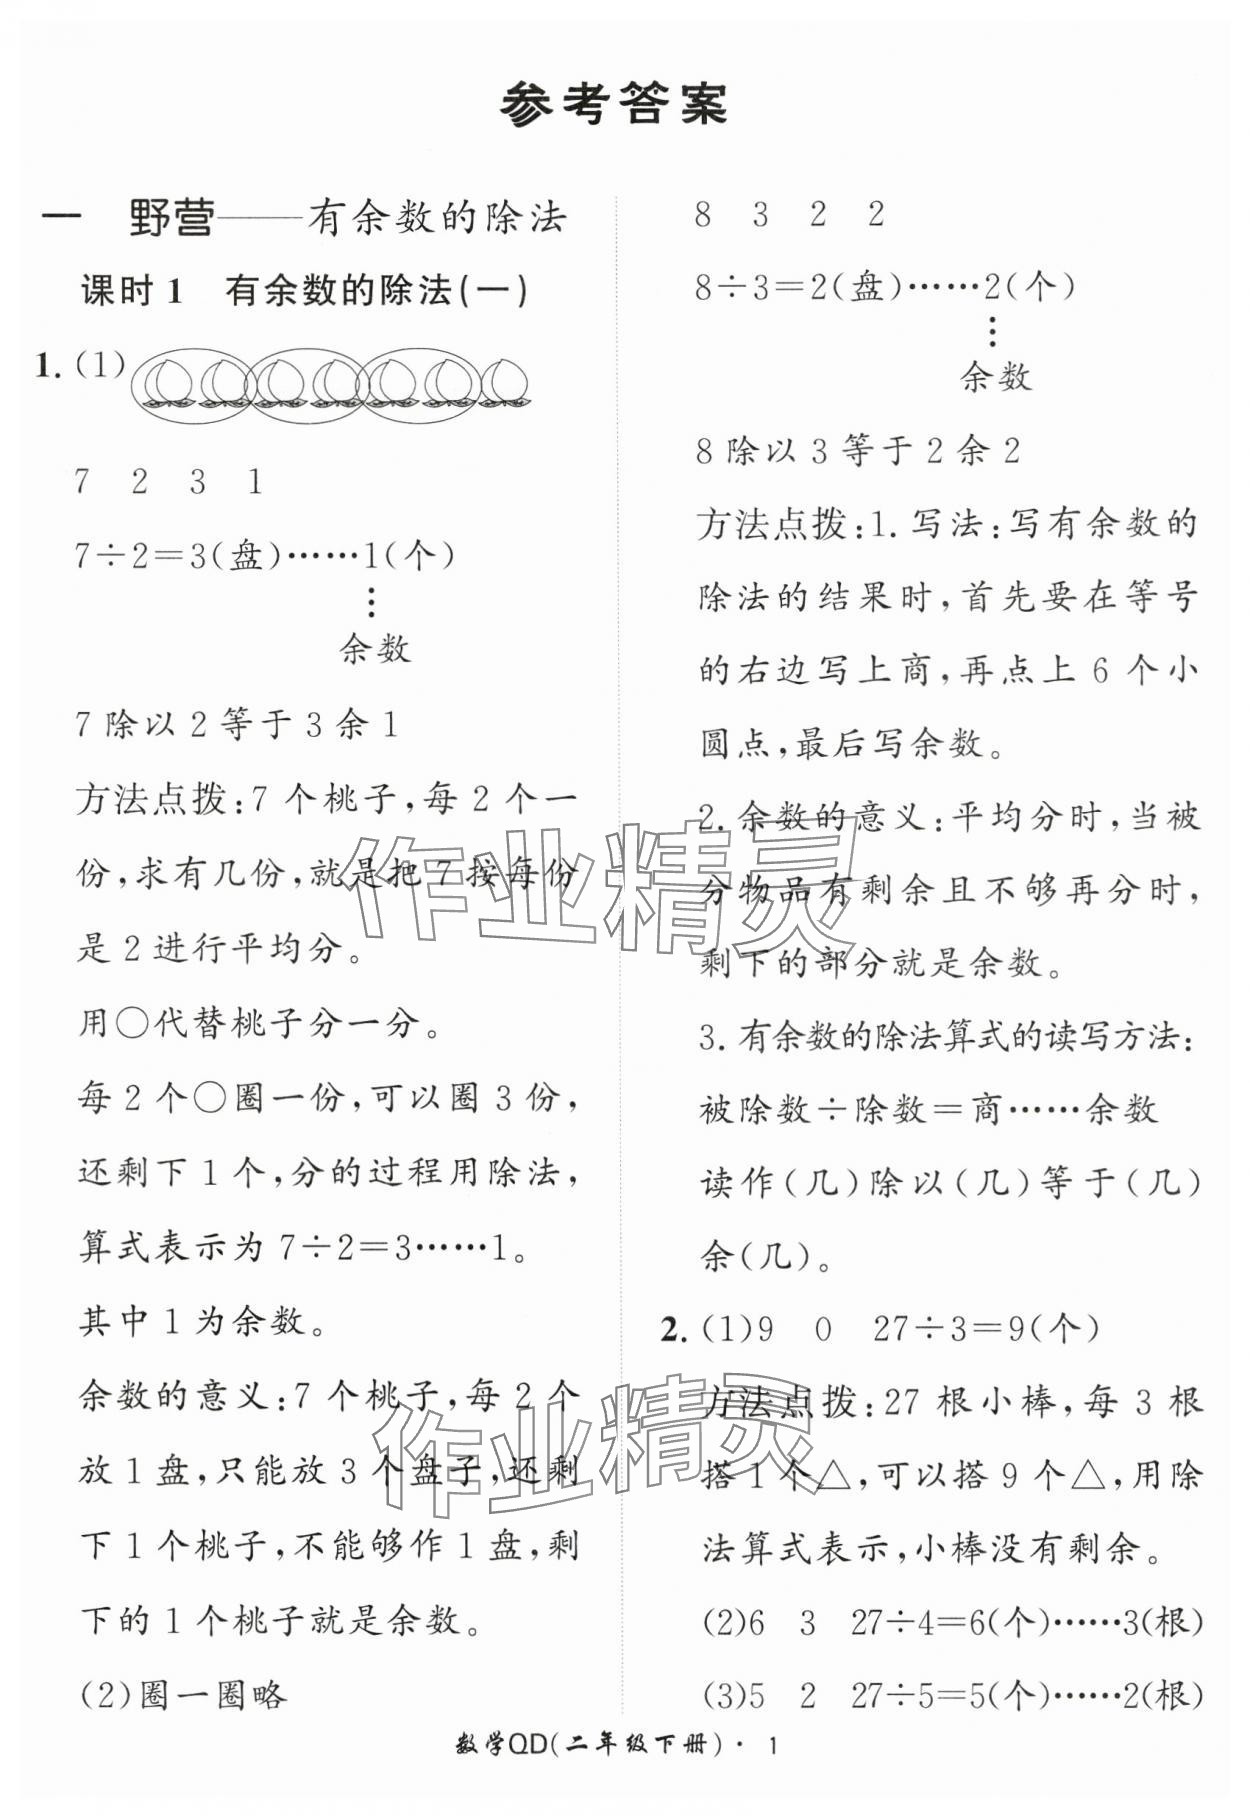 参考答案
一 野营——有余数的除法
课时 1 有余数的除法(一)
1.(1)
7 2 3 1
7÷2=3(盘)……1(个)
⋮
余数
7 除以 2 等于 3 余 1
方法点拨:7 个桃子,每 2 个一
份,求有几份,就是把 7 按每份
是 2 进行平均分。
用○代替桃子分一分。
每 2 个○圈一份,可以圈 3 份,
还剩下 1 个,分的过程用除法,
算式表示为 7÷2=3……1。
其中 1 为余数。
余数的意义:7 个桃子,每 2 个
放 1 盘,只能放 3 个盘子,还剩
下 1 个桃子,不能够作 1 盘,剩
下的 1 个桃子就是余数。
(2)圈一圈略
8 3 2 2
8÷3=2(盘)……2(个)
⋮
余数
8 除以 3 等于 2 余 2
方法点拨:1. 写法:写有余数的
除法的结果时,首先要在等号
的右边写上商,再点上 6 个小
圆点,最后写余数。
2. 余数的意义:平均分时,当被
分物品有剩余且不够再分时,
剩下的部分就是余数。
3. 有余数的除法算式的读写方法:
被除数÷除数=商……余数
读作(几)除以(几)等于(几)
余(几)。
2. (1)9 0 27÷3=9(个)
方法点拨:27 根小棒,每 3 根
搭 1 个△,可以搭 9 个△,用除
法算式表示,小棒没有剩余。
(2)6 3 27÷4=6(个)……3(根)
(3)5 2 27÷5=5(个)……2(根)
数学QD(二年级下册)· 1
作业精灵
作业精灵